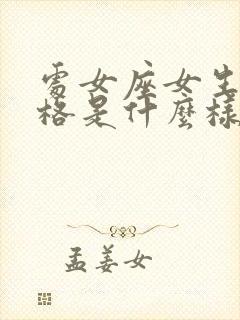 處女座女生
格是什麼樣
孟姜女